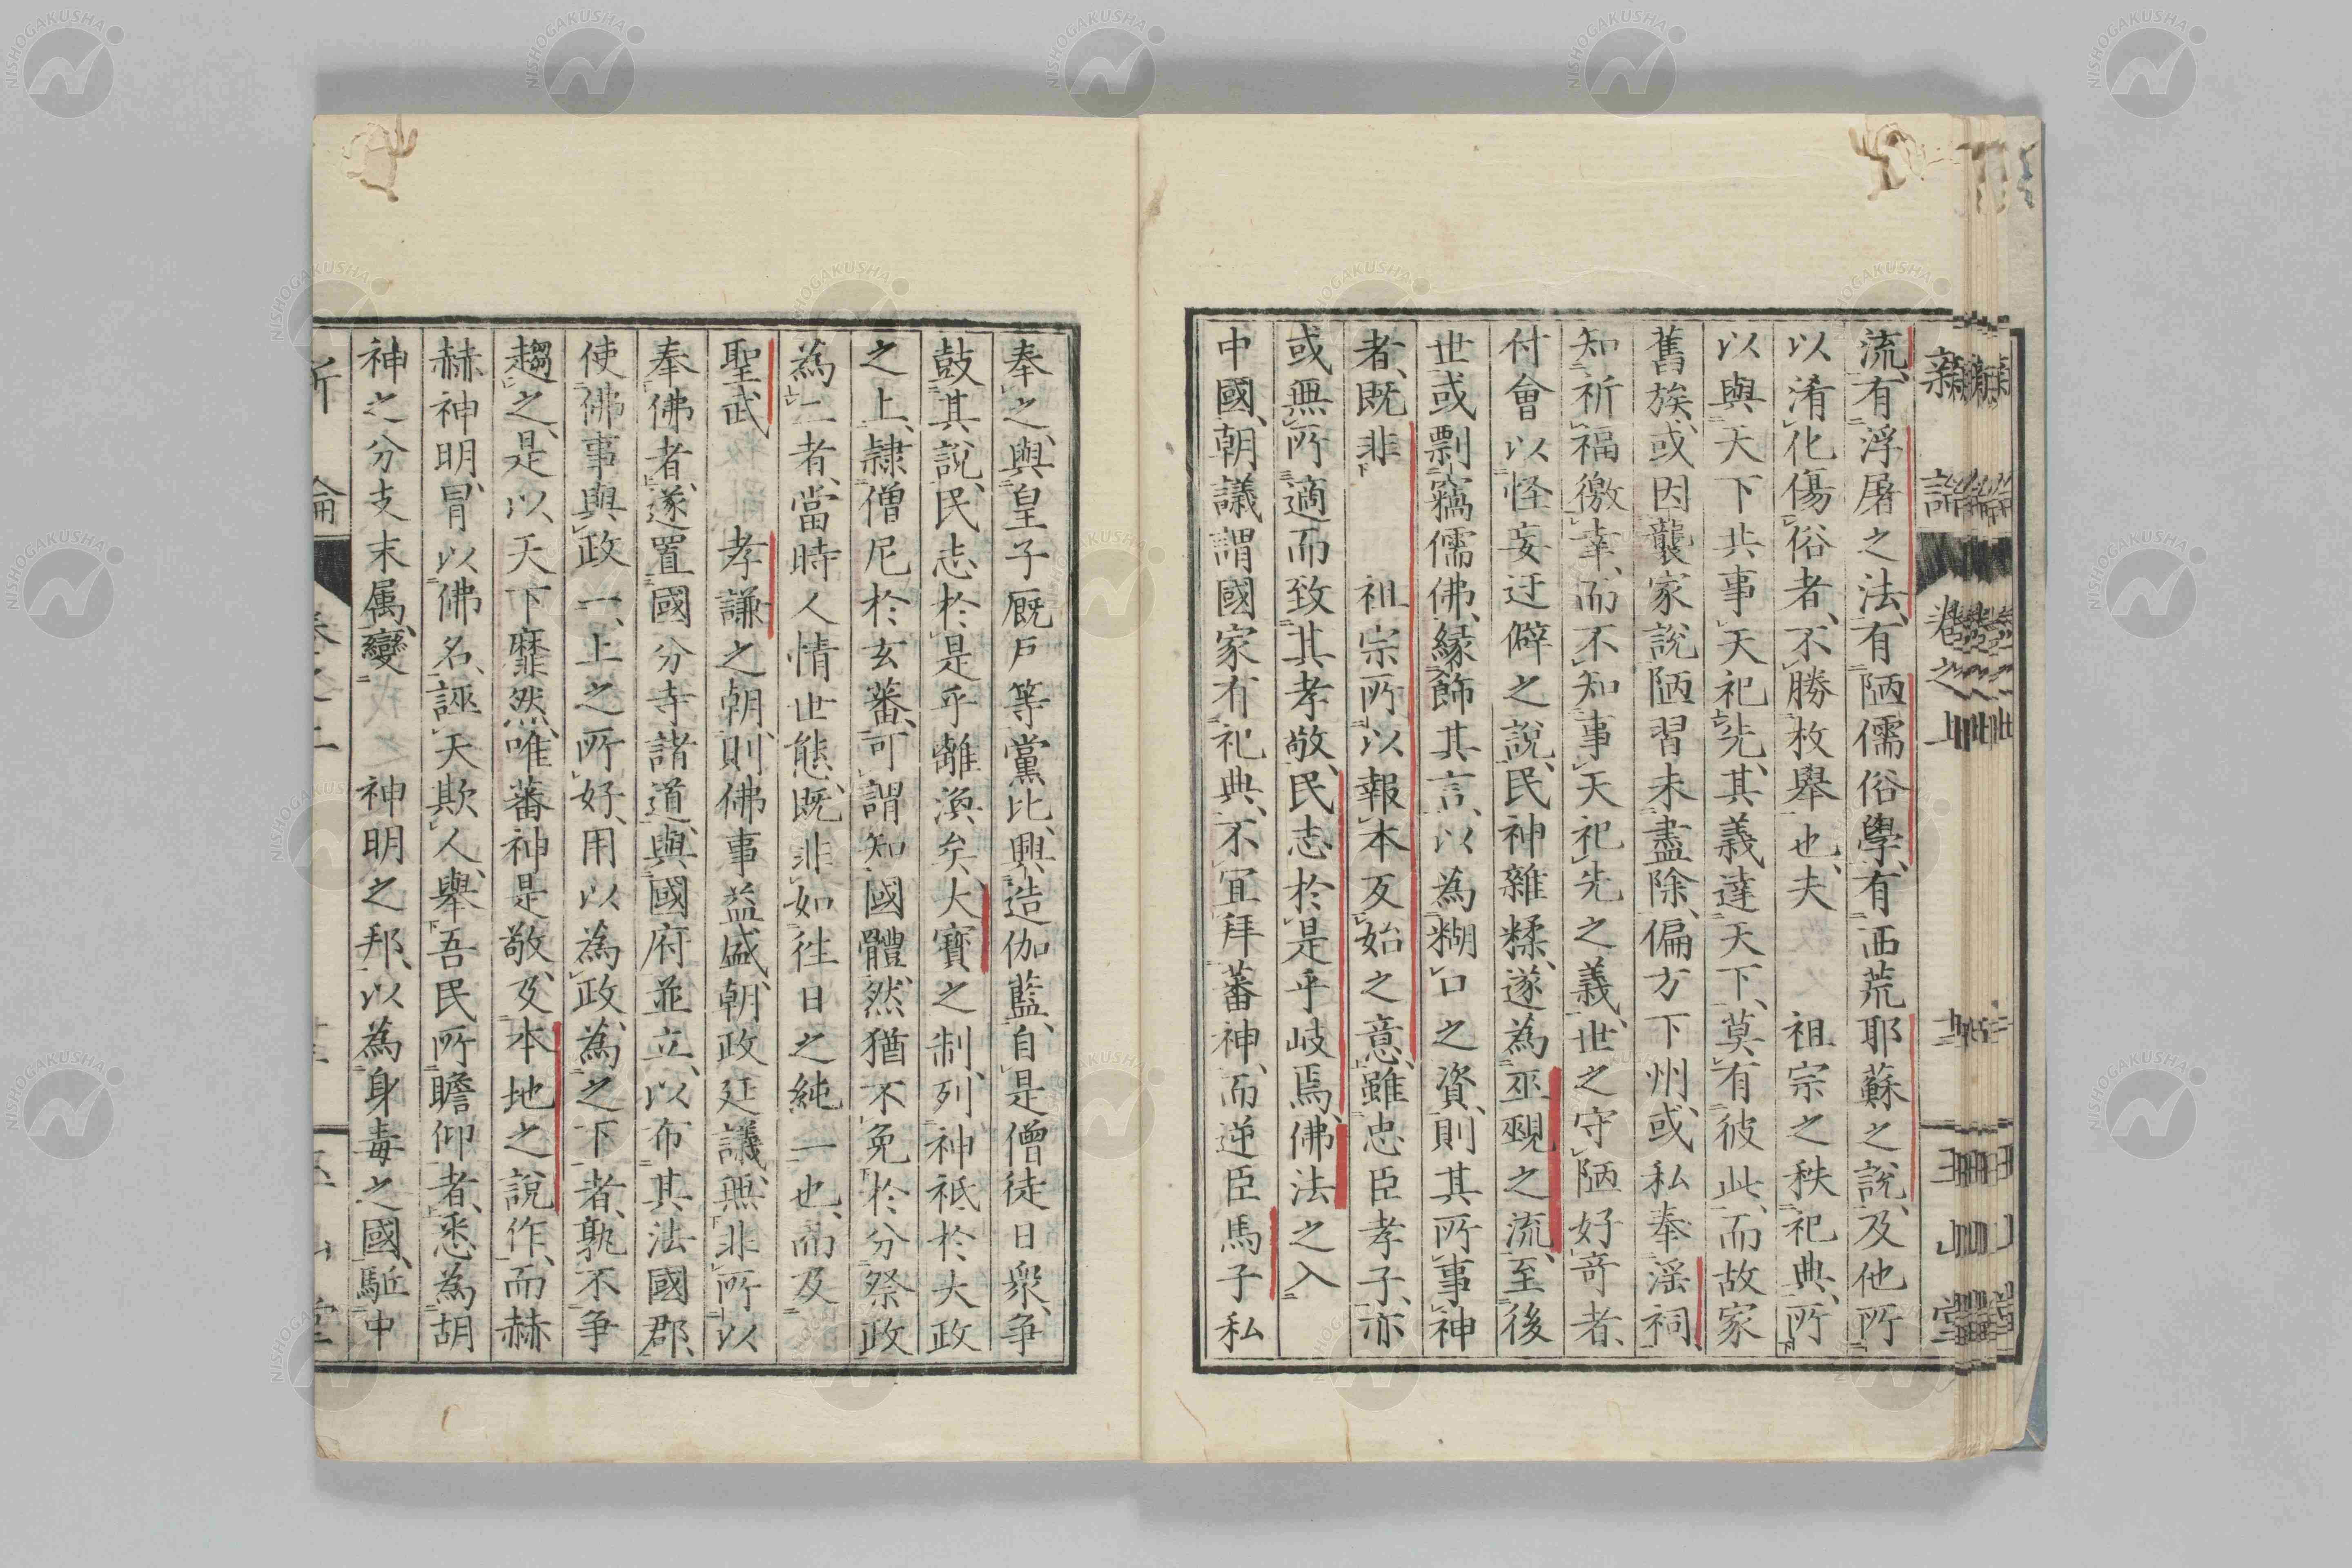 新論 卷之上 玉山堂
流、有浮屠之法、有陋儒俗學、有西荒耶蘇之說、及他所
以淆化傷俗者、不勝枚舉也、夫 祖宗之秩祀典、所
以與天下共事天祀先、其義達天下、莫有彼此、而故家
舊族、或因襲家說陋習未盡除、偏方下州、或私奉淫祠
知祈福徼幸、而不知事天祀先之義、世之守陋好奇者、
付會以怪妄迂僻之說、民神雜糅、遂為巫覡之流、至後
世或剽竊儒佛、緣飾其言、以為糊口之資、則其所事神
者、既非 祖宗所以報本反始之意、雖忠臣孝子、亦
或無所適而致其孝敬、民志於是乎岐焉、佛法之入
中國、朝議謂國家有祀典、不宜拜蕃神、而逆臣馬子私
奉之、與皇子廐戶等黨比、興造伽藍、自是僧徒日衆、爭
鼓其說、民志於是乎離渙矣、大寶之制、列神祇於大政
之上、隸僧尼於玄蕃、可謂知國體、然猶不免於分祭政
為二者、當時人情世態、既非如往日之純一也、而及
聖武 孝謙之朝、則佛事益盛、朝政廷議、無非所以
奉佛者、遂置國分寺諸道、與國府並立、以布其法國郡、
使佛事與政一、上之所好、用以為政、為之下者、孰不爭
趨之、是以天下靡然、唯蕃神是敬、及本地之說作、而赫
赫神明、冒以佛名、誣天欺人、舉吾民所瞻仰者、悉為胡
神之分支末属、變 神明之邦、以為身毒之國、駈中